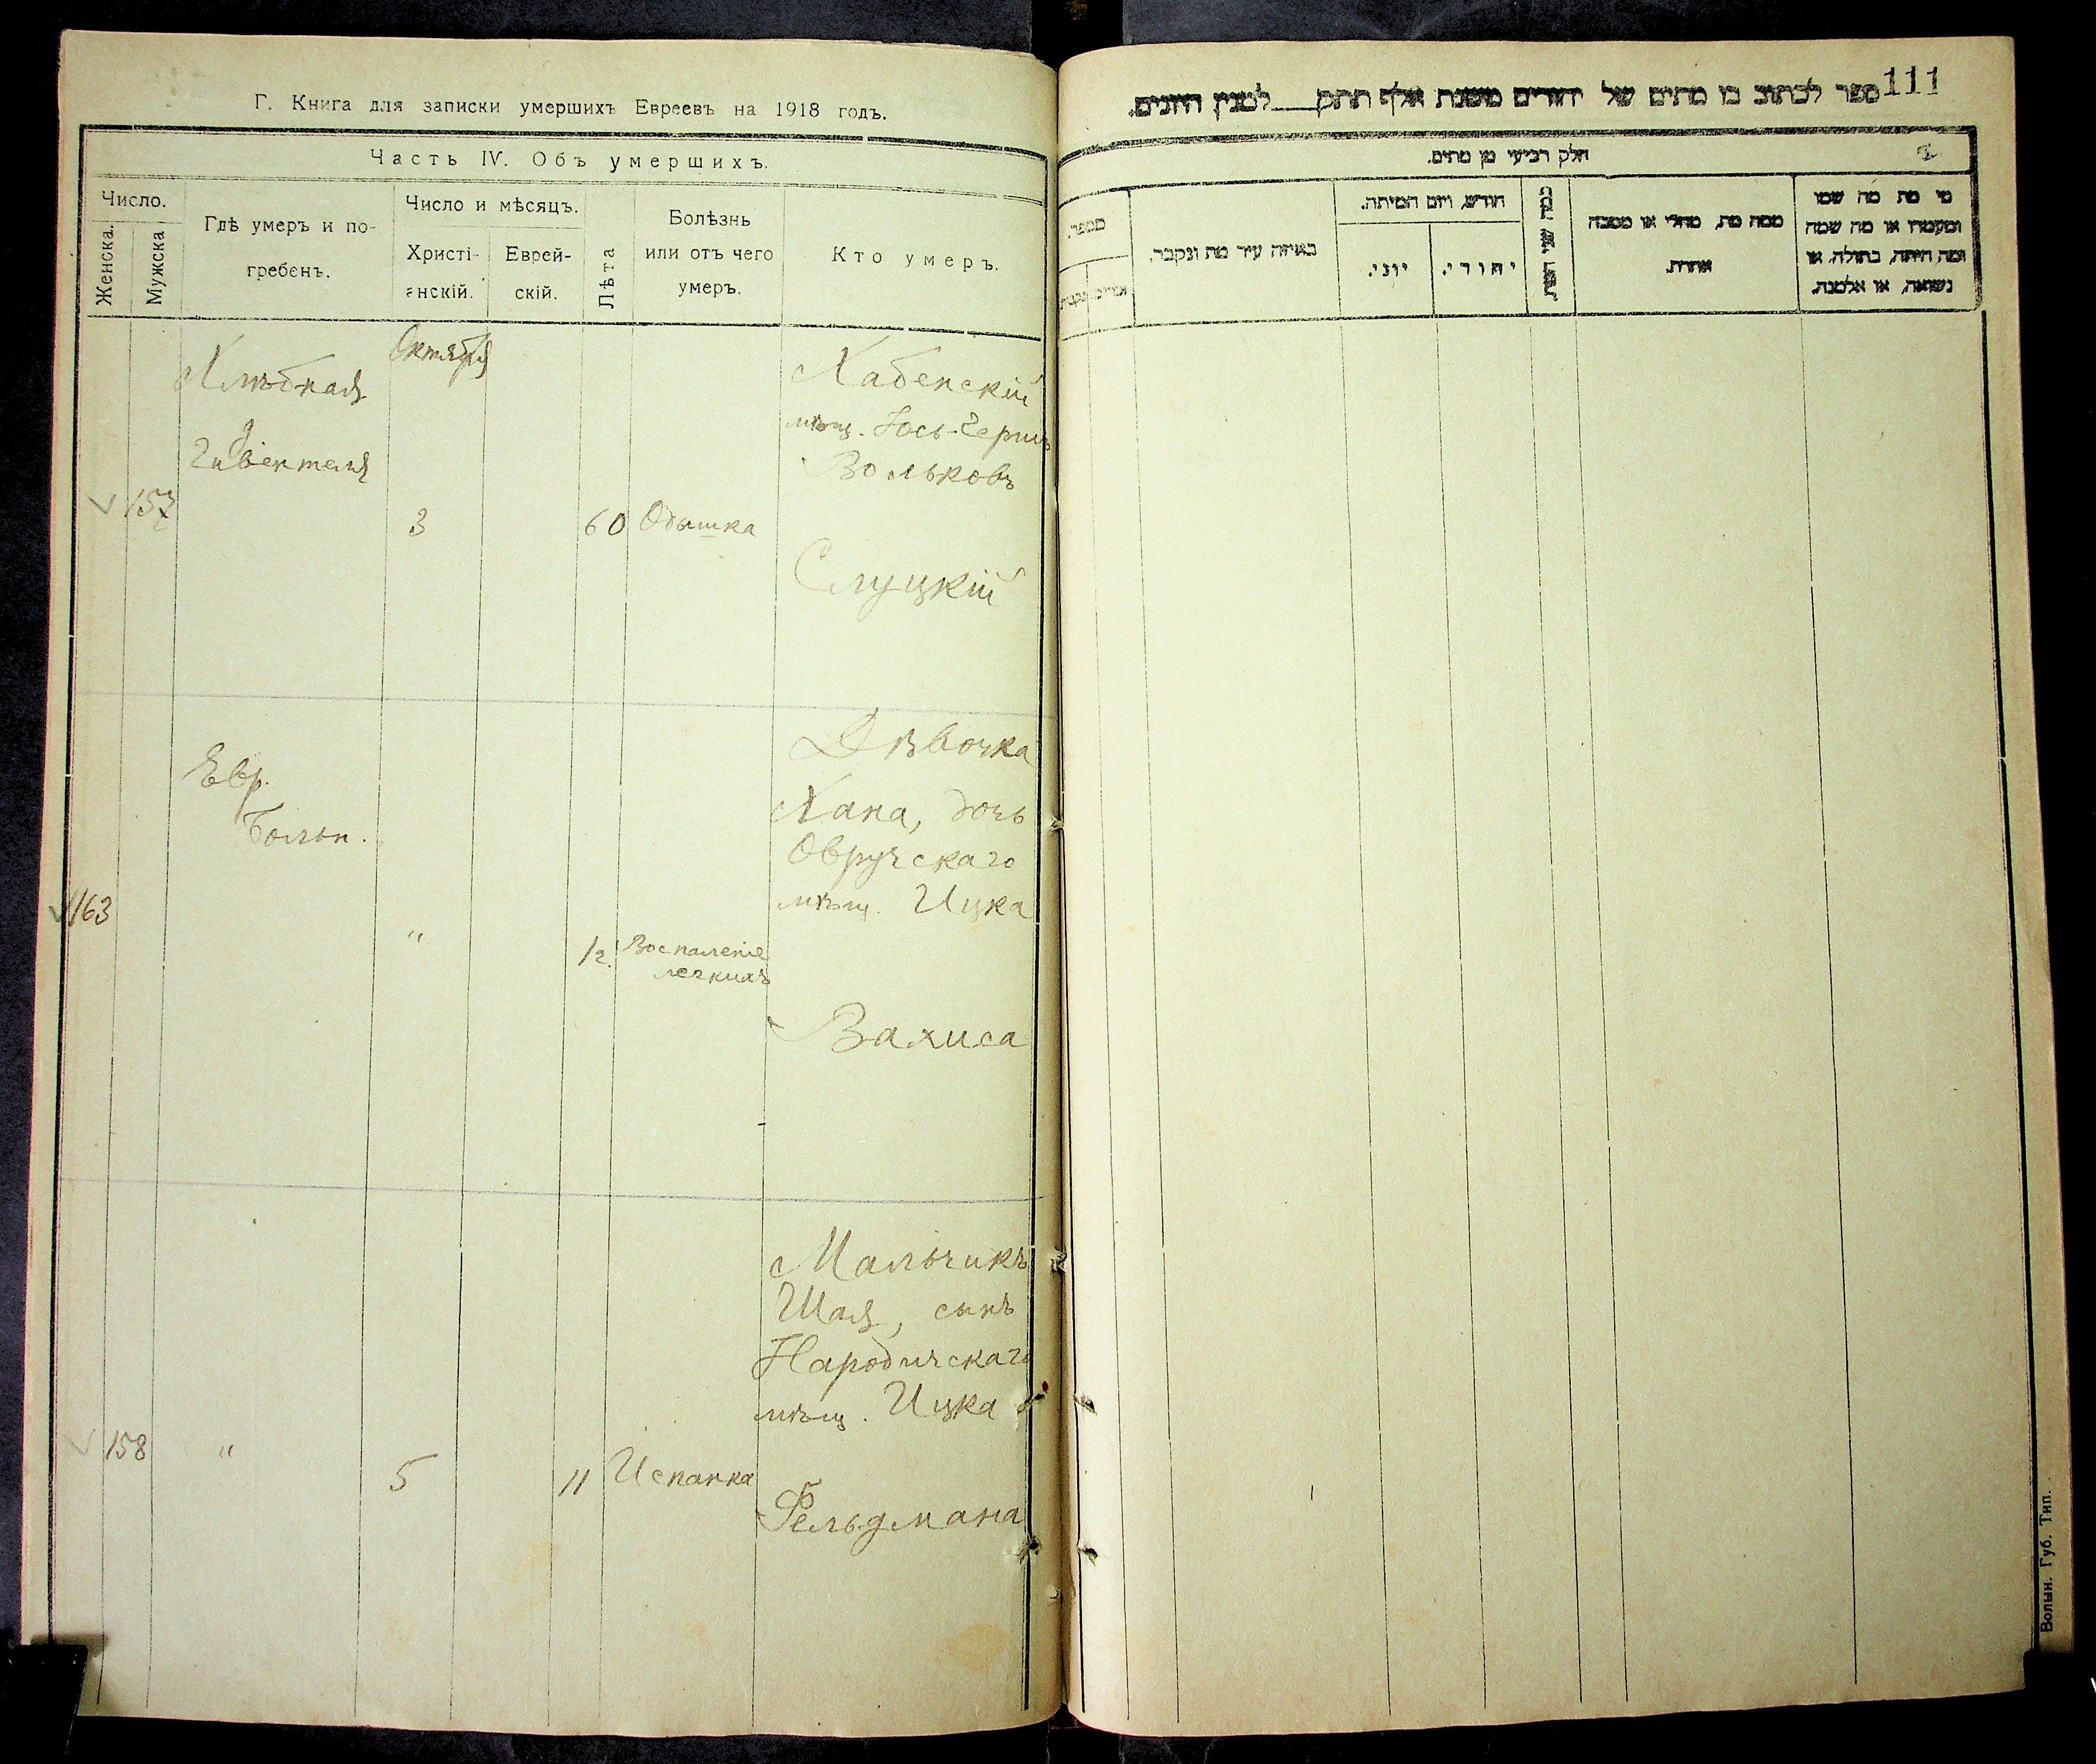 Г. Книга для записки умершихъ Евреевъ на 1918 годъ.
Часть IV. Объ умершихъ.
Число.
Женска.
Мужска
Гдѣ умеръ и по-
гребенъ.
Число и мѣсяцъ.
Христі-
анскій.
Еврей-
скій.
Лѣта
Болѣзнь
или отъ чего
умеръ.
Кто умеръ.
Хлѣбная
Октября
Хабенскій
мѣщ. Іось-Герш
Вольковъ
157
3
60
Одышка
Слуцкій
Евр.
Больн.
Дѣвочка
Хана, дочь
Овручскаго
мѣщ. Ицка
163
"
1/2.
Воспаленіе
легкихъ
Вахиса
Мальчикъ
Шая, сынъ
Народичскаго
мѣщ. Ицка
158
"
5
11
Испанка
Фельдмана
111
ספר לכתוב בו מתים של יהודים משנת אלף תתק לסנין היונים.
חלק רביעי מן מתים.
מספר.
באיזה עיר מת ונקבר.
חודש, ויום המיתה.
יוני.
יהודי.
ממה מת, מחלי או מסבה
אחרת.
מי מת מה שמו
ומעמדו או מה שמה
ומה היתה, בתולה, או
נשואה, או אלמנה.
Волын. Губ. Тип.